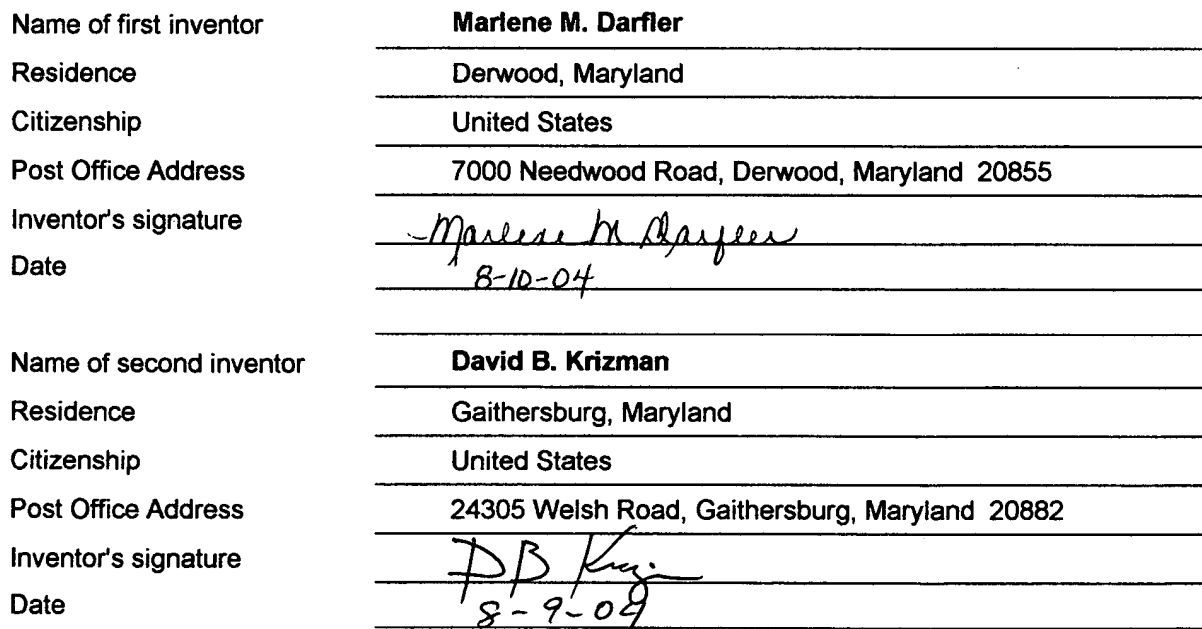 Name of first inventor Marlene M. Darfler
Residence Derwood, Maryland
Citizenship United States
Post Office Address 7000 Needwood Road, Derwood, Maryland 20855
Inventor's signature Marlene M Darfler
Date 8-10-04
Name of second inventor David B. Krizman
Residence Gaithersburg, Maryland
Citizenship United States
Post Office Address 24305 Welsh Road, Gaithersburg, Maryland 20882
Inventor's signature D B Kriz
Date 8-9-04